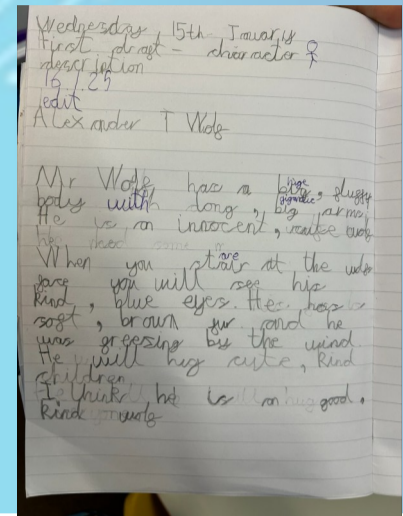 Wednesday, 15th Jnuary
First draft - character
description
16/1/25
edit
Alexander T Wolf
Mr Wolf has a big, fluffy
huge
body with long, big arms,
gigantic
He is an innocent, wolf
When you stair at the wolfs
are
face you will see his
kind, blue eyes. He has
soft, brown fur and he
was greesing by the wind.
He will hug cute, kind
children
I think he is an good,
kind wolf